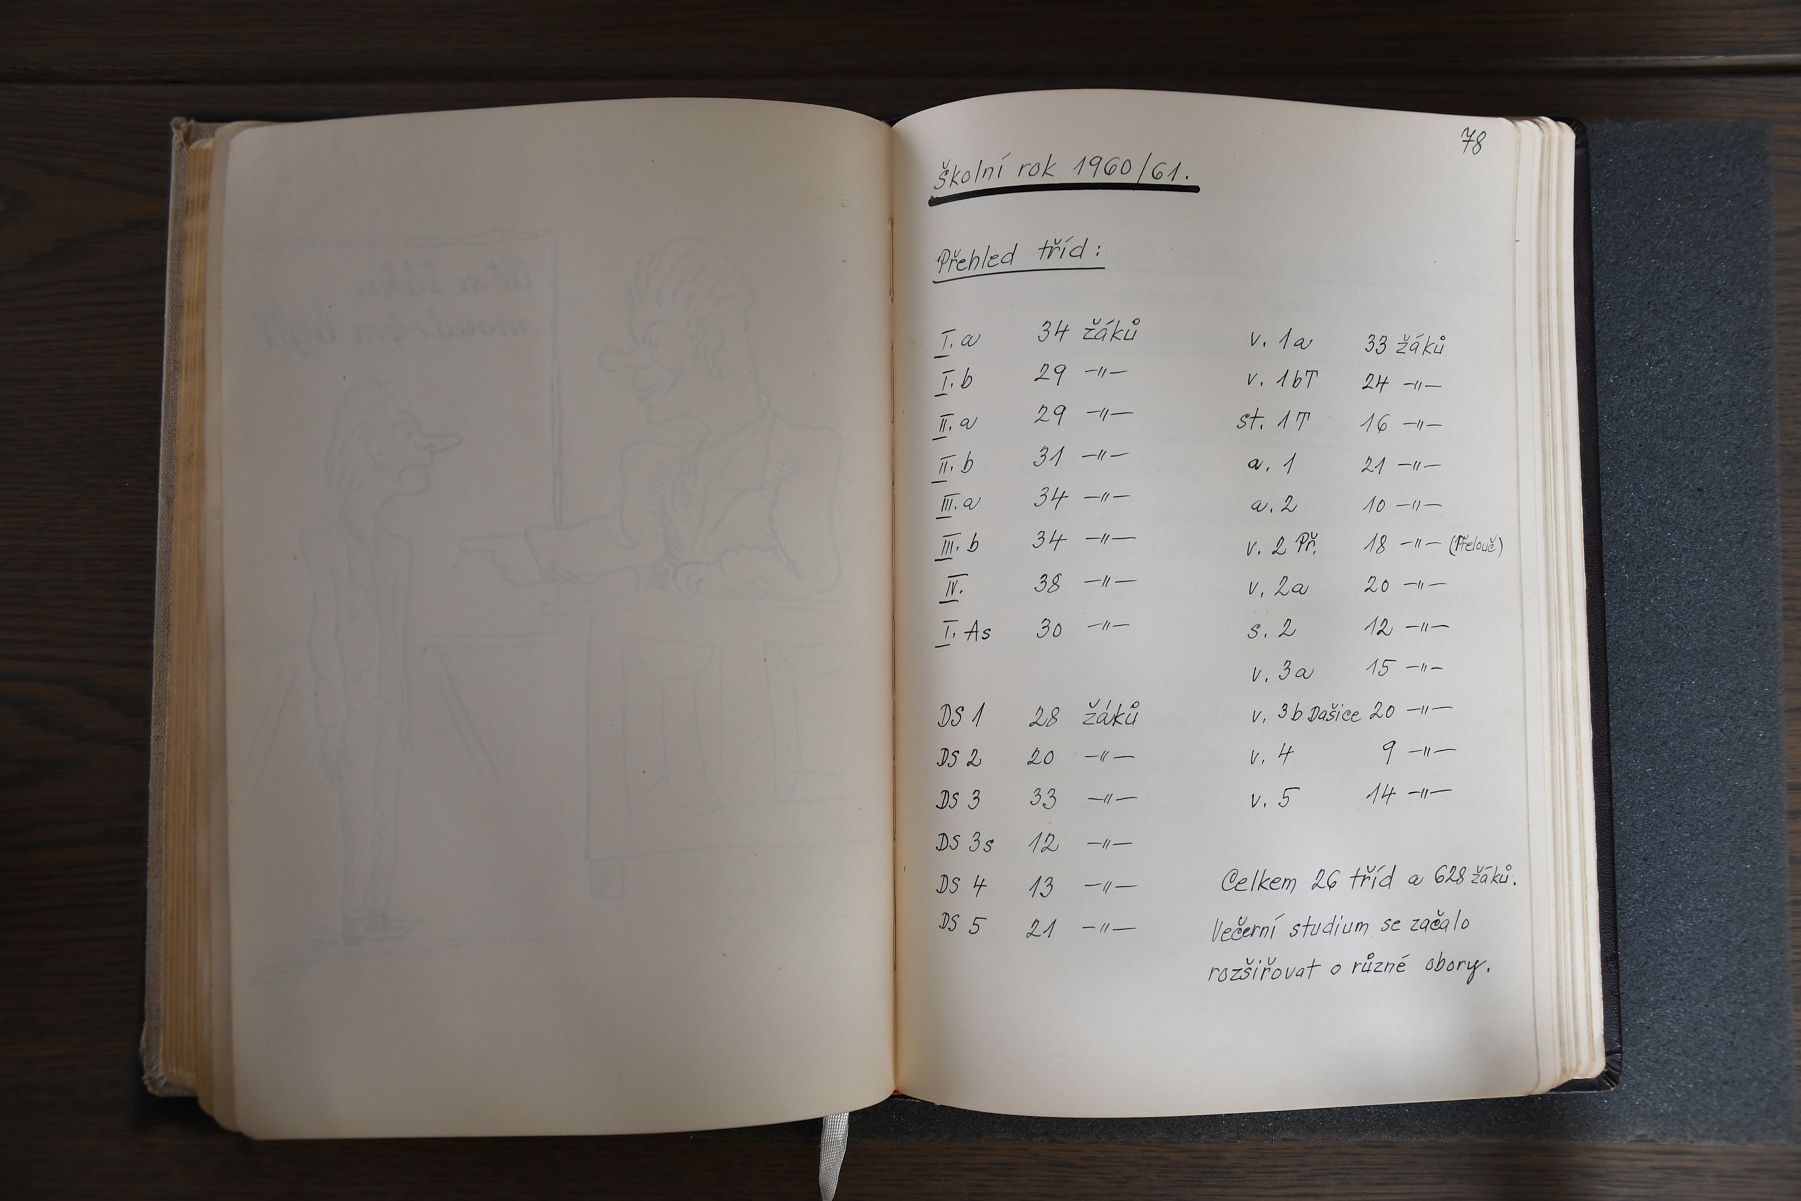 78
Školní rok 1960/61.
Přehled tříd:
I. a 34 žáků
I. b 29 —"—
II. a 29 —"—
II. b 31 —"—
III. a 34 —"—
III. b 34 —"—
IV. 38 —"—
I. As 30 —"—
DS 1 28 žáků
DS 2 20 —"—
DS 3 33 —"—
DS 3s 12 —"—
DS 4 13 —"—
DS 5 21 —"—
v. 1a 33 žáků
v. 1bT 24 —"—
st. 1T 16 —"—
a. 1 21 —"—
a. 2 10 —"—
v. 2 Př. 18 —"— (Přelouč)
v. 2a 20 —"—
s. 2 12 —"—
v. 3a 15 —"—
v. 3b Dašice 20 —"—
v. 4 9 —"—
v. 5 14 —"—
Celkem 26 tříd a 628 žáků.
Večerní studium se začalo
rozšiřovat o různé obory.